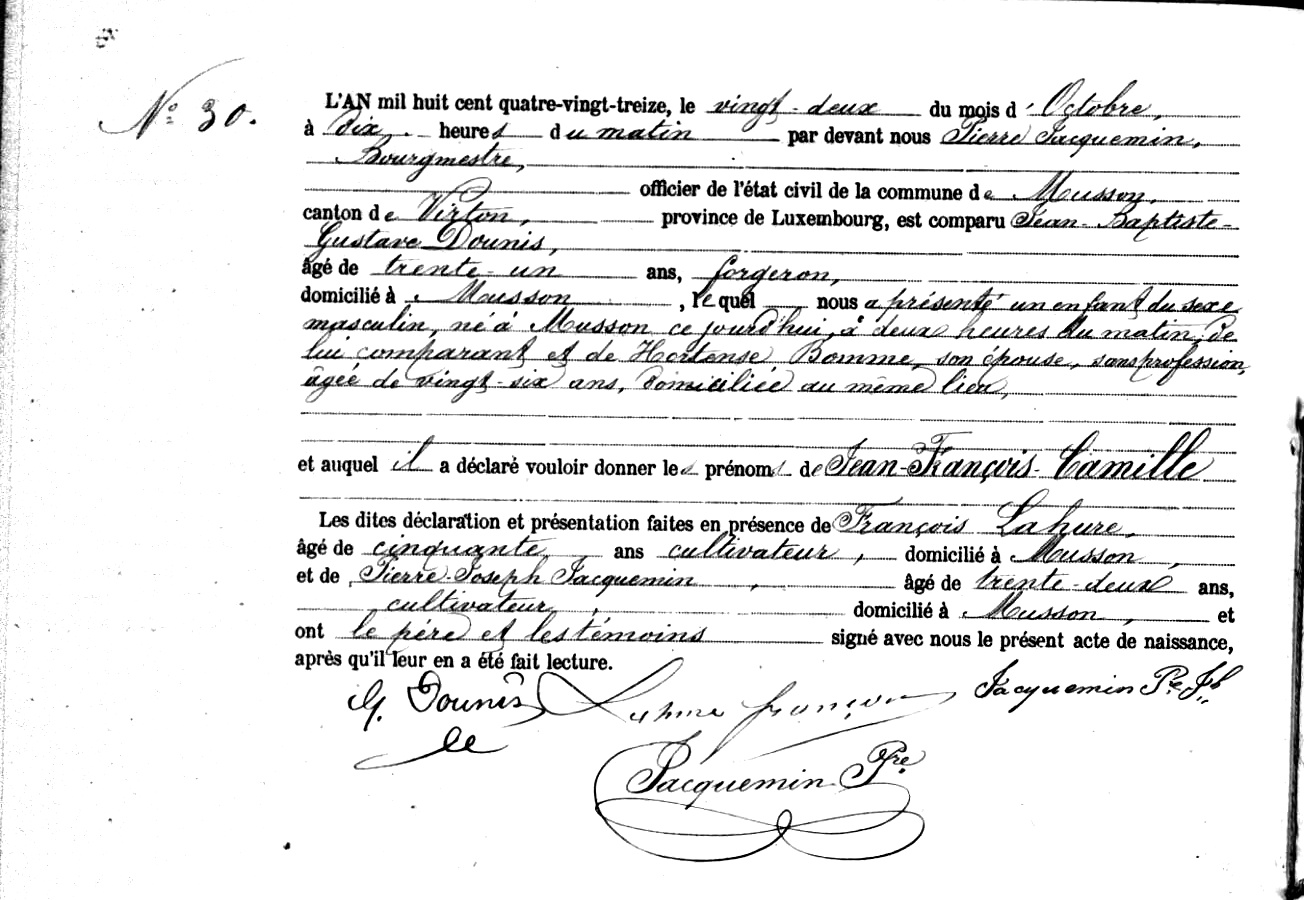 N° 30.
L'AN mil huit cent quatre-vingt-treize, le vingt-deux du mois d'Octobre,
à dix heures du matin par devant nous Pierre Jacquemin,
Bourgmestre,
officier de l'état civil de la commune de Musson,
canton de Virton, province de Luxembourg, est comparu Jean-Baptiste-
Gustave Dounis,
âgé de trente-un ans, forgeron,
domicilié à Musson, lequel nous a présenté un enfant du sexe
masculin, né à Musson ce jourd'hui, à deux heures du matin, de
lui comparant et de Hortense Bomme, son épouse, sans profession,
âgée de vingt-six ans, domiciliée au même lieu,
et auquel il a déclaré vouloir donner les prénoms de Jean-François-Camille
Les dites déclaration et présentation faites en présence de François Lahure,
âgé de cinquante ans cultivateur, domicilié à Musson,
et de Pierre-Joseph Jacquemin, âgé de trente-deux ans,
cultivateur, domicilié à Musson, et
ont le père et les témoins signé avec nous le présent acte de naissance,
après qu'il leur en a été fait lecture.
G. Dounis Lahure françois Jacquemin Pre Jh
Jacquemin Pre.